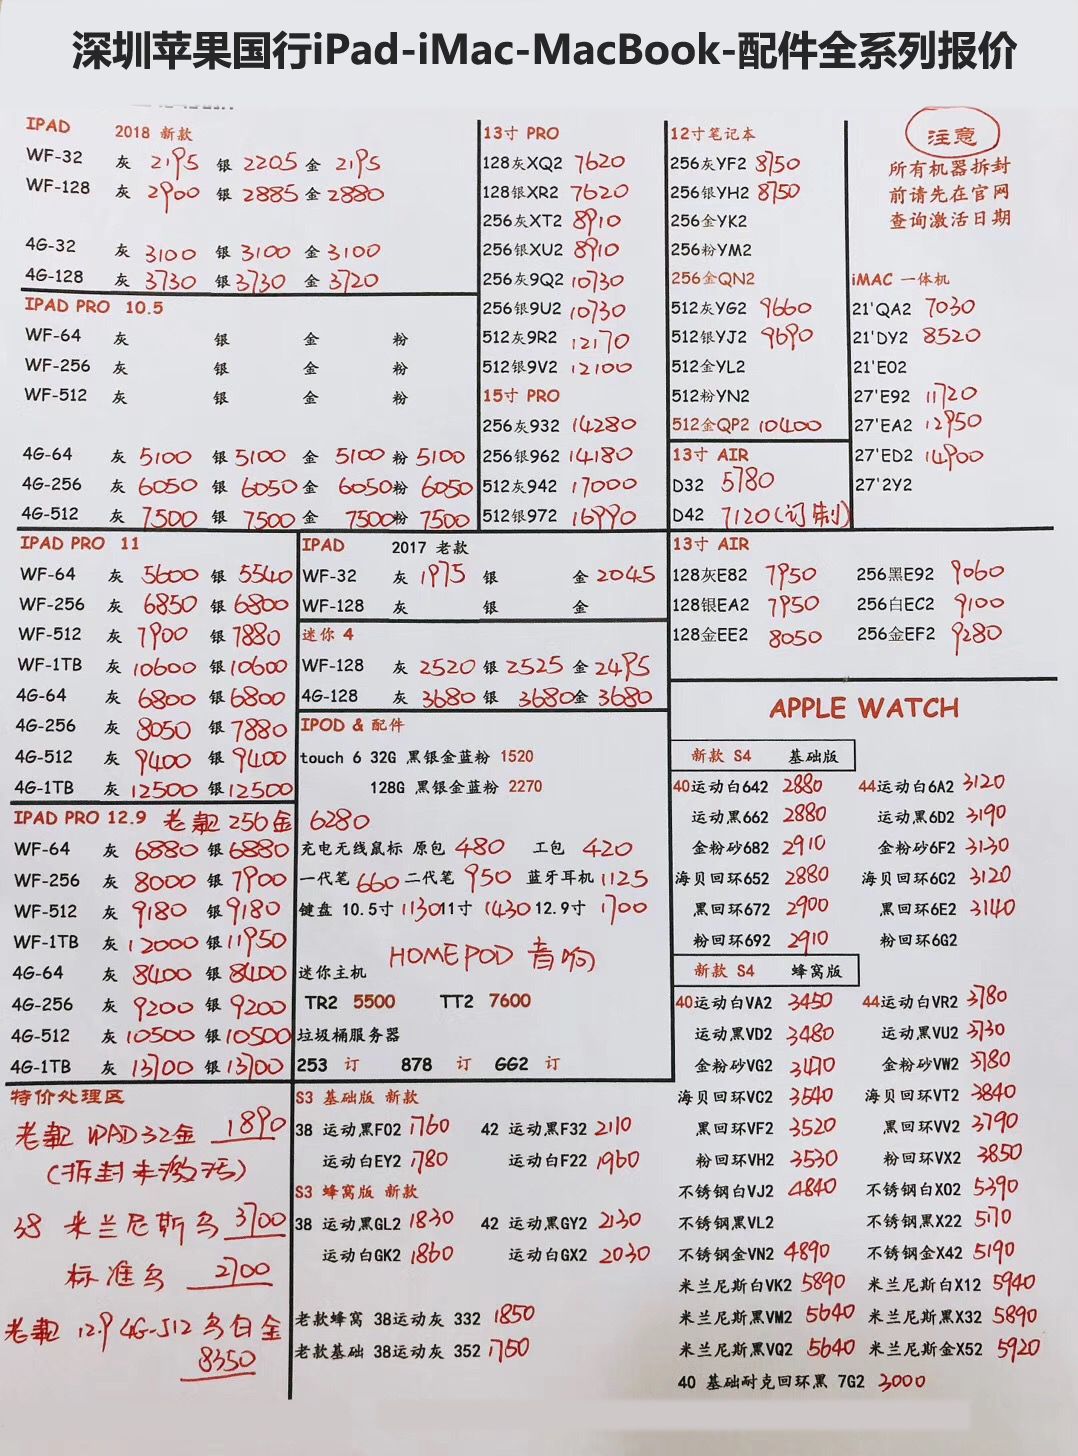 深圳苹果国行iPad-iMac-MacBook-配件全系列报价
IPAD 2018 新款
WF-32 灰 2195 银 2205 金 2195
WF-128 灰 2900 银 2885 金 2880
4G-32 灰 3100 银 3100 金 3100
4G-128 灰 3730 银 3730 金 3720
IPAD PRO 10.5
WF-64 灰 银 金 粉
WF-256 灰 银 金 粉
WF-512 灰 银 金 粉
4G-64 灰 5100 银 5100 金 5100 粉 5100
4G-256 灰 6050 银 6050 金 6050 粉 6050
4G-512 灰 7500 银 7500 金 7500 粉 7500
13寸 PRO
128灰XQ2 7620
128银XR2 7620
256灰XT2 8910
256银XU2 8910
256灰9Q2 10730
256银9U2 10730
512灰9R2 12170
512银9V2 12100
15寸 PRO
256灰932 14280
256银962 14180
512灰942 17000
512银972 16990
12寸笔记本
256灰YF2 8750
256银YH2 8750
256金YK2
256粉YM2
256金QN2
512灰YG2 9660
512银YJ2 9690
512金YL2
512粉YN2
512金QP2 10400
13寸 AIR
D32 5780
D42 7120(订制)
注意
所有机器拆封
前请先在官网
查询激活日期
iMAC 一体机
21'QA2 7030
21'DY2 8520
21'E02
27'E92 11720
27'EA2 12950
27'ED2 14900
27'2Y2
IPAD PRO 11
WF-64 灰 5600 银 5540
WF-256 灰 6850 银 6800
WF-512 灰 7900 银 7880
WF-1TB 灰 10600 银 10600
4G-64 灰 6800 银 6800
4G-256 灰 8050 银 7880
4G-512 灰 9400 银 9400
4G-1TB 灰 12500 银 12500
IPAD 2017 老款
WF-32 灰 1975 银 金 2045
WF-128 灰 银 金
迷你 4
WF-128 灰 2520 银 2525 金 2495
4G-128 灰 3680 银 3680 金 3680
13寸 AIR
128灰E82 7950 256黑E92 9060
128银EA2 7950 256白EC2 9100
128金EE2 8050 256金EF2 9280
IPAD PRO 12.9 老款 256金 6280
WF-64 灰 6880 银 6880
WF-256 灰 8000 银 7900
WF-512 灰 9180 银 9180
WF-1TB 灰 12000 银 11950
4G-64 灰 8400 银 8400
4G-256 灰 9200 银 9200
4G-512 灰 10500 银 10500
4G-1TB 灰 13700 银 13700
IPOD & 配件
touch 6 32G 黑银金蓝粉 1520
128G 黑银金蓝粉 2270
充电无线鼠标 原包 480 工包 420
一代笔 660 二代笔 950 蓝牙耳机 1125
键盘 10.5寸 1130 11寸 1430 12.9寸 1700
HOMEPOD 音响
迷你主机
TR2 5500 TT2 7600
垃圾桶服务器
253 订 878 订 GG2 订
APPLE WATCH
新款 S4 基础版
40运动白642 2880 44运动白6A2 3120
运动黑662 2880 运动黑6D2 3190
金粉砂682 2910 金粉砂6F2 3130
海贝回环652 2880 海贝回环6C2 3120
黑回环672 2900 黑回环6E2 3140
粉回环692 2910 粉回环6G2
新款 S4 蜂窝版
40运动白VA2 3450 44运动白VR2 3780
运动黑VD2 3480 运动黑VU2 3730
金粉砂VG2 3470 金粉砂VW2 3780
海贝回环VC2 3540 海贝回环VT2 3840
黑回环VF2 3520 黑回环VV2 3790
粉回环VH2 3530 粉回环VX2 3850
不锈钢白VJ2 4840 不锈钢白X02 5390
不锈钢黑VL2 不锈钢黑X22 5170
不锈钢金VN2 4890 不锈钢金X42 5190
米兰尼斯白VK2 5890 米兰尼斯白X12 5940
米兰尼斯黑VM2 5640 米兰尼斯黑X32 5890
米兰尼斯黑VQ2 5640 米兰尼斯金X52 5920
40 基础耐克回环黑 7G2 3000
特价处理区
老款 IPAD 32金 1890
(拆封未激活)
38 米兰尼斯多 3700
标准多 2700
老款 12.9 4G-512 多白金
8350
S3 基础版 新款
38 运动黑F02 1760 42 运动黑F32 2110
运动白EY2 1780 运动白F22 1960
S3 蜂窝版 新款
38 运动黑GL2 1830 42 运动黑GY2 2130
运动白GK2 1860 运动白GX2 2030
老款蜂窝 38运动灰 332 1850
老款基础 38运动灰 352 1750